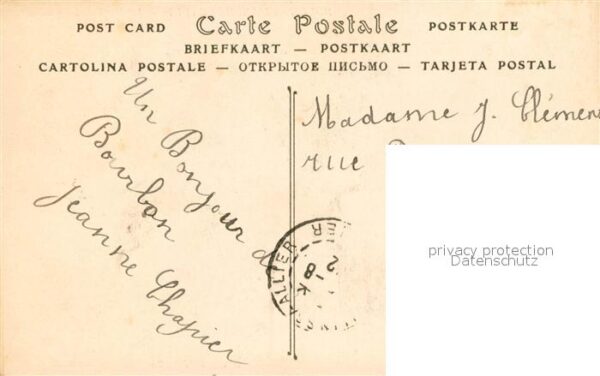 POST CARD Carte Postale POSTKARTE
BRIEFKAART — POSTKAART
CARTOLINA POSTALE — ОТКРЫТОЕ ПИСЬМО — TARJETA POSTAL
Un Bonjour de
Bourbon
Jeanne Chapier
Madame J. Clément
rue
ALLIER
8
2
K
privacy protection
Datenschutz